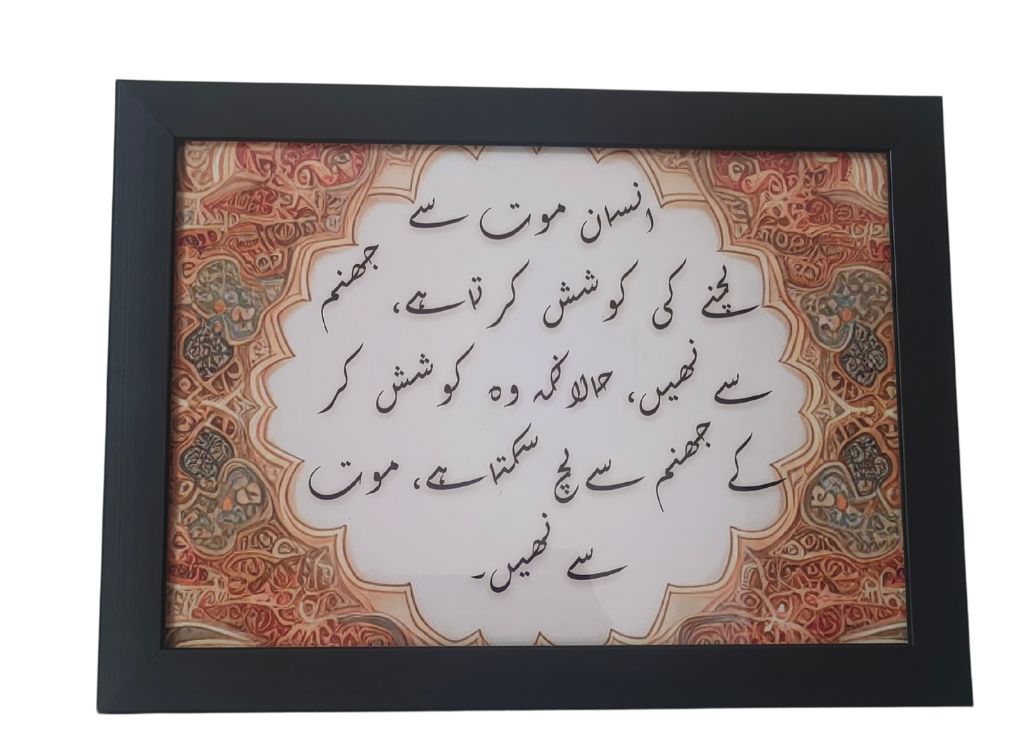 انسان موت سے
بچنے کی کوشش کرتا ہے، جھنم
سے نھیں، حالانکہ وہ کوشش کر
کے جھنم سے بچ سکتا ہے، موت
سے نھیں۔